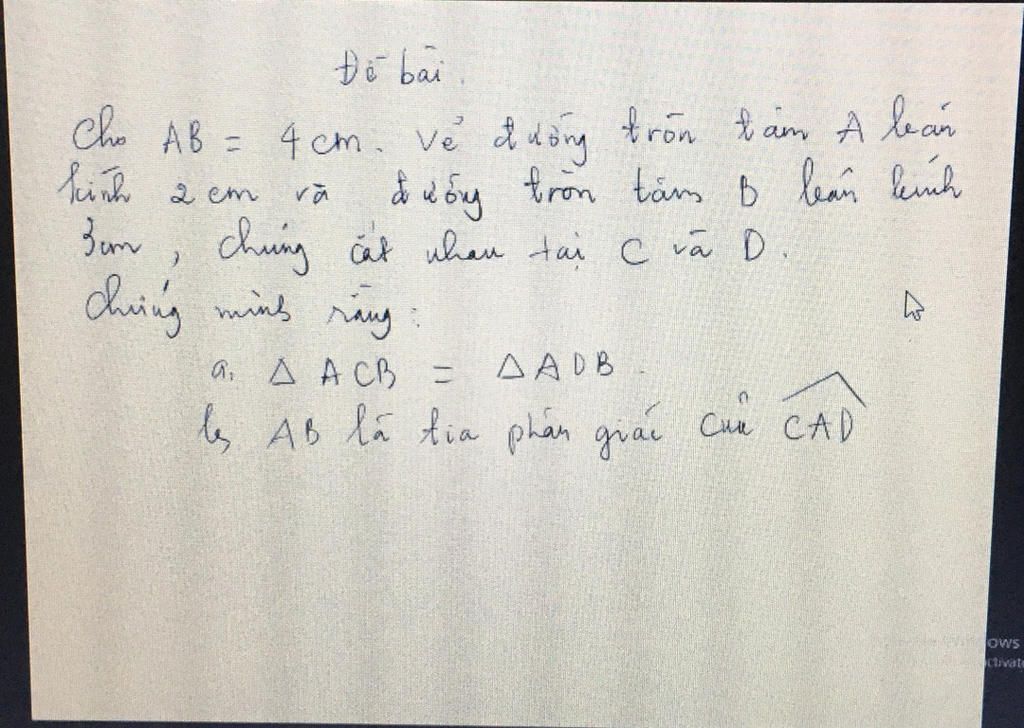 Đề bài.
Cho AB = 4 cm. Vẽ đường tròn tâm A bán
kính 2 cm và đường tròn tâm B bán kính
3cm, chúng cắt nhau tại C và D.
Chứng minh rằng:
a, Δ ACB = Δ ADB.
b, AB là tia phân giác của CAD